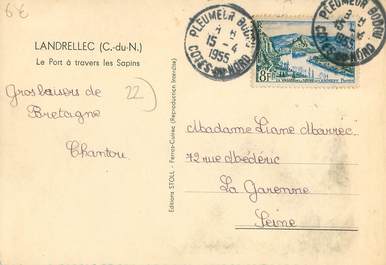 6€
LANDRELLEC (C.-du-N.)
Le Port à travers les Sapins
22
Gros baisers de
Bretagne
Chantou
Editions STOLL - Perros-Guirec (Reproduction interdite)
PLEUMEUR BODOU
15 - 4
1955
COTES-DU-NORD
8F
Madame Liane Marrec
72 rue Médéric
La Garenne
Seine